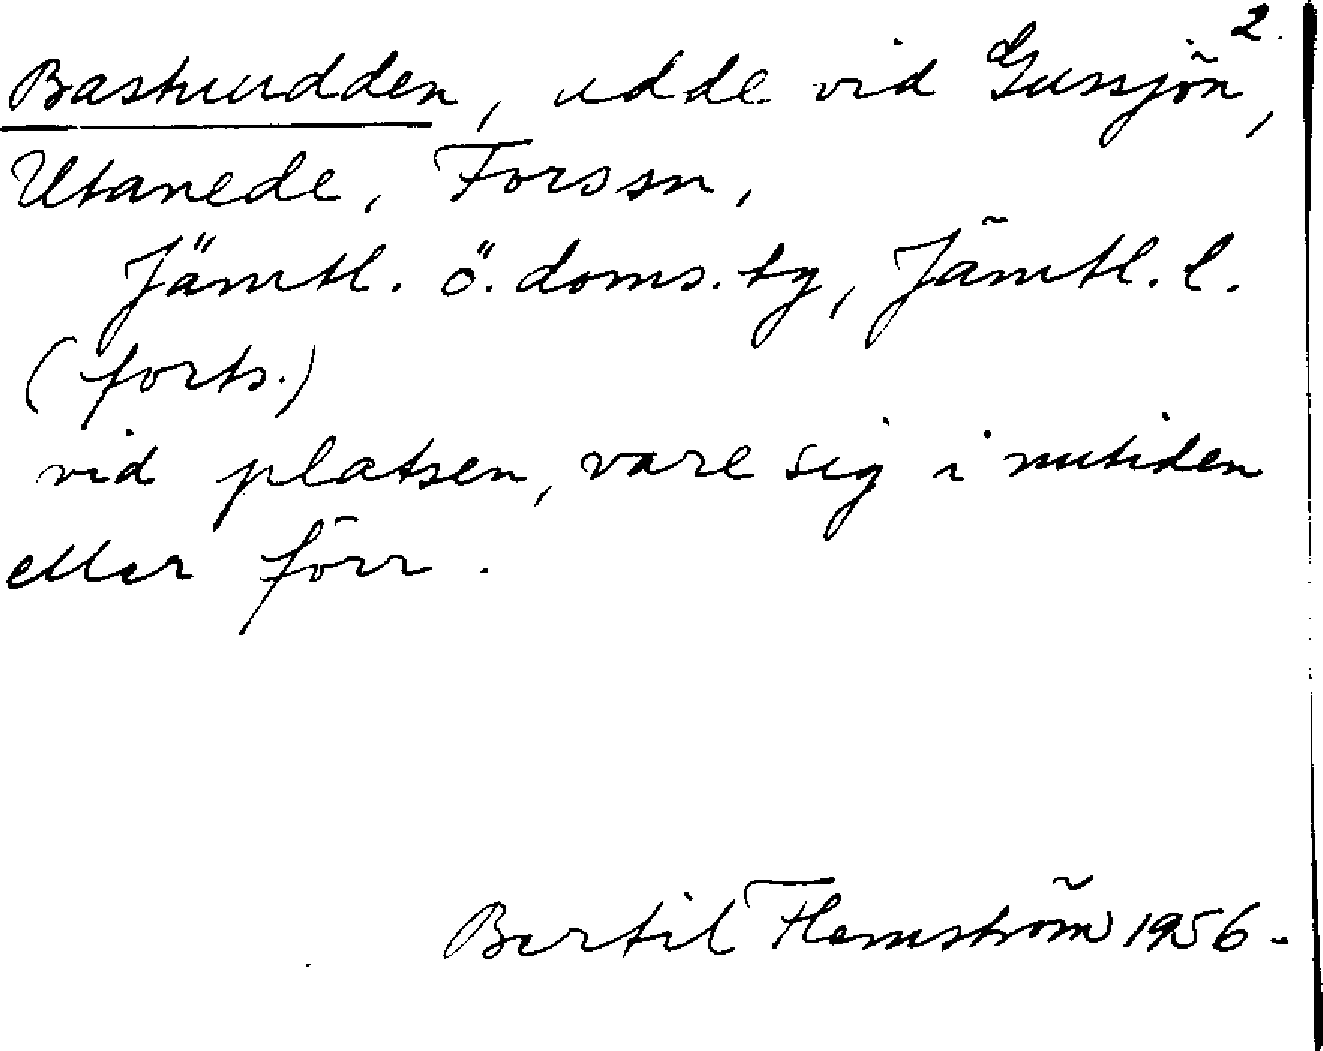 2.
Bastuudden, udde vid Gussjön,
Utanede, Fors sn,
Jämtl. ö. doms. tg, Jämtl. l.
(forts.)
vid platsen, vare sig i nutiden
eller förr.
Bertil Flemström 1956.